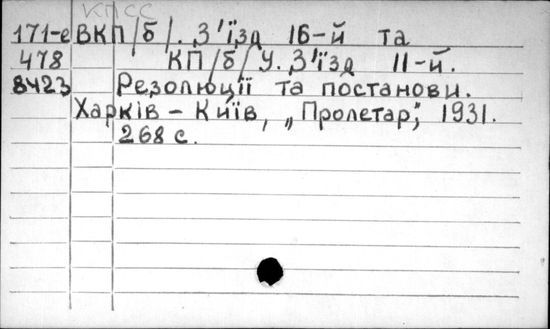 КПСС
171-е ВКП/б/. З'їзд 16-й та
478 КП/б/У. З'їзд 11-й.
8423 Резолюції та постанови.
Харків - Київ, „Пролетар", 1931.
268 с.